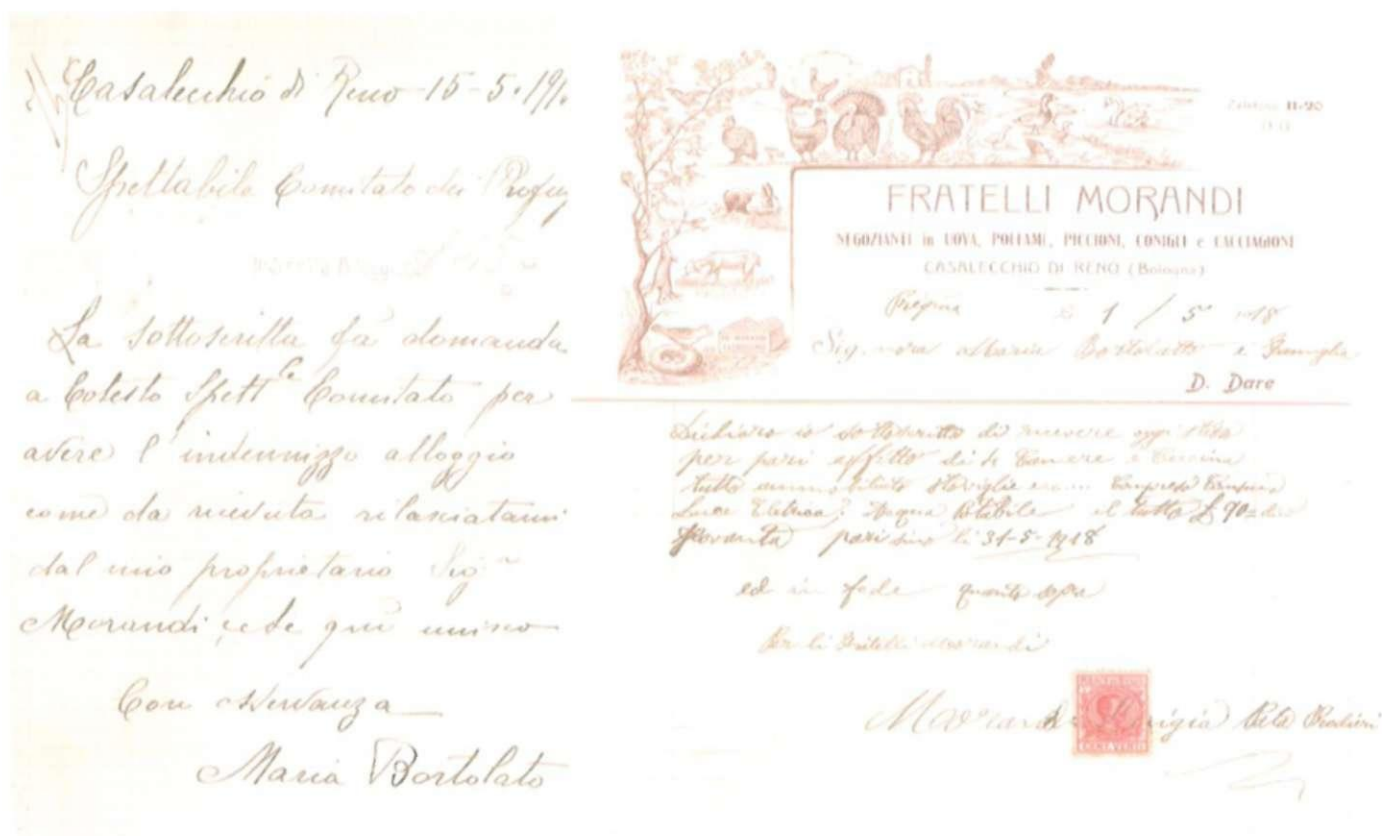 Casalecchio di Reno 15-5-191
Spettabile Comitato dei Profug
La sottoscritta fa domanda
a Cotesto Spett.le Comitato per
avere l'indennizzo alloggio
come da ricevuta rilasciatami
dal mio proprietario Sig.r
Morandi che qui unisco
Con osservanza
Maria Bortolato
Telefono 11-20
FRATELLI MORANDI
NEGOZIANTI in UOVA, POLLAMI, PICCIONI, CONIGLI e CACCIAGIONE
CASALECCHIO DI RENO (Bologna)
1 / 5 1918
Sig.nora Maria Bortolatto e Famiglia
D. Dare
Dichiaro io sottoscritto di ricevere oggi
per pari effetto di Camere e Cucina
tutto stoviglie compreso
Luce Elettrica, Acqua Potabile il tutto £ 90
Novanta pari sino li 31-5-1918
ed in fede quanto sopra
Per li Fratelli Morandi
Morandi Luigia
CENT. VENTI